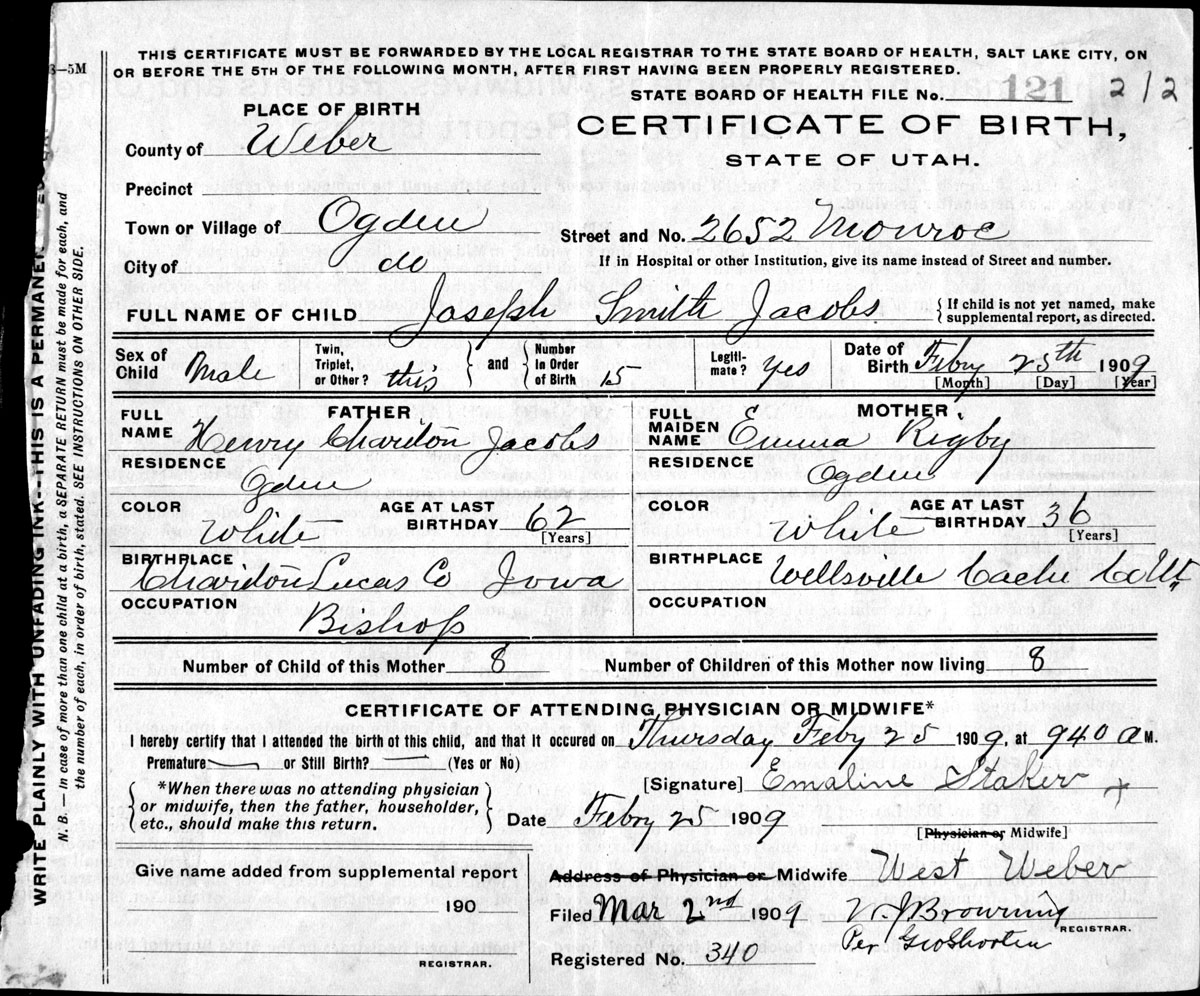 THIS CERTIFICATE MUST BE FORWARDED BY THE LOCAL REGISTRAR TO THE STATE BOARD OF HEALTH, SALT LAKE CITY, ON
OR BEFORE THE 5TH OF THE FOLLOWING MONTH, AFTER FIRST HAVING BEEN PROPERLY REGISTERED.
—5M
STATE BOARD OF HEALTH FILE No. 121 212
PLACE OF BIRTH
CERTIFICATE OF BIRTH,
STATE OF UTAH.
County of Weber
Precinct
Town or Village of Ogden
Street and No. 2652 Monroe
City of do
If in Hospital or other Institution, give its name instead of Street and number.
FULL NAME OF CHILD Joseph Smith Jacobs
{ If child is not yet named, make
supplemental report, as directed.
Sex of Child Male
Twin, Triplet, or Other? this } and { Number in Order of Birth 15
Legiti-mate? Yes
Date of Birth Febry 25th 1909
[Month] [Day] [Year]
FATHER
FULL NAME Henry Charidon Jacobs
RESIDENCE
Ogden
COLOR White
AGE AT LAST BIRTHDAY 62 [Years]
BIRTHPLACE
Charidon Lucas Co Iowa
OCCUPATION
Bishop
MOTHER
FULL MAIDEN NAME Emma Rigby
RESIDENCE
Ogden
COLOR White
AGE AT LAST BIRTHDAY 36 [Years]
BIRTHPLACE
Wellsville Cache Co Ut
OCCUPATION
Number of Child of this Mother 8 Number of Children of this Mother now living 8
CERTIFICATE OF ATTENDING PHYSICIAN OR MIDWIFE*
I hereby certify that I attended the birth of this child, and that it occured on Thursday Feby 25 1909, at 940 a M.
Premature or Still Birth? (Yes or No)
[Signature] Emaline Staker
{ *When there was no attending physician
or midwife, then the father, householder,
etc., should make this return. }
Date Febry 25 1909
[Physician or Midwife]
Give name added from supplemental report
190
REGISTRAR.
Address of Physician or Midwife West Weber
Filed Mar 2nd 1909 W. J Browning
REGISTRAR.
Per Geo Shorten
Registered No. 340
WRITE PLAINLY WITH UNFADING INK--THIS IS A PERMANEN
N. B.— In case of more than one child at a birth, a SEPARATE RETURN must be made for each, and
the number of each, in order of birth, stated. SEE INSTRUCTIONS ON OTHER SIDE.